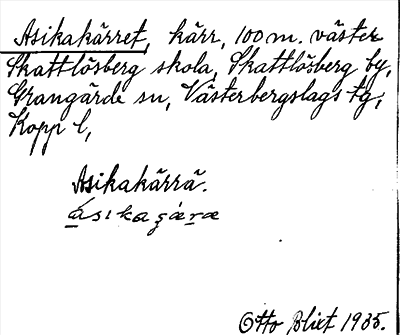 Asikakärret, kärr, 100 m. väster
Skattlösberg skola, Skattlösberg by,
Grangärde sn, Västerbergslags tg,
Kopp l,
Asikakärrä.
Otto Blixt 1935.